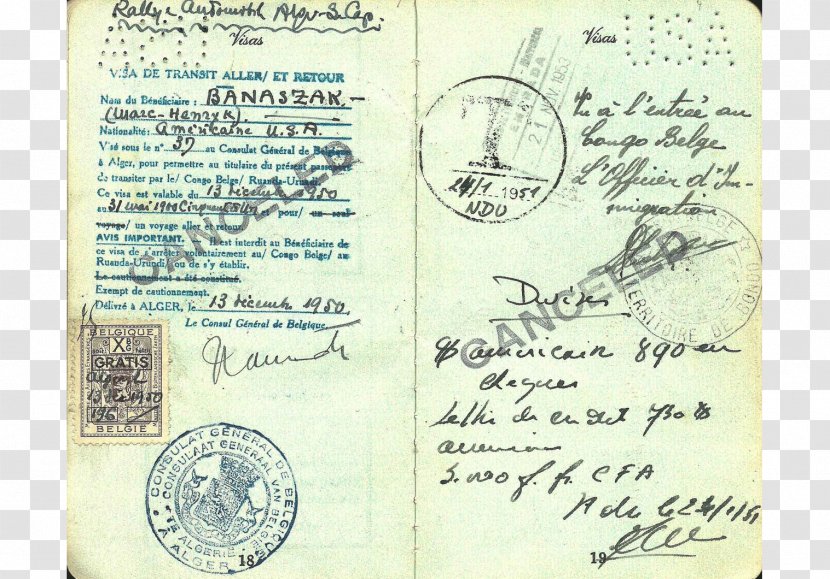 Rallye Automobile Alger-Le Cap.
Visas
USA
VISA DE TRANSIT ALLER/ ET RETOUR
Nom du Bénéficiaire : BANASZAK.-
(Marc-Henryk).
Nationalité: Américaine U.S.A.
Visé sous le n° 37 au Consulat Général de Belgique
à Alger, pour permettre au titulaire du présent passeport
de transiter par le/ Congo Belge/ Ruanda-Urundi.
Ce visa est valable du 13 décembre 1950
au 31 mai 1900 Cinquante et un pour/ un seul
voyage/ un voyage aller et retour.
AVIS IMPORTANT. Il est interdit au Bénéficiaire de
ce visa de s'arrêter volontairement au/ Congo Belge/ au
Ruanda-Urundi/ou de s'y établir.
Le cautionnement a été constitué.
Exempt de cautionnement.
Délivré à ALGER, le 13 décembre 1950.
Le Consul Général de Belgique
CANCELED
BELGIQUE
X
GRATIS
13 1950
196
BELGIE
CONSULAT GÉNÉRAL DE BELGIQUE
CONSULAAT GENERAAL VAN BELGIE
TE ALGERIE
A ALGER
18
Visas
USA
21 NOV 1953
T
24/1 1951
NDU
Vu à l'entrée au
Congo Belge
L'Officier d'Im-
migration
TERRITOIRE DE
CANCELED
Devises
$ américain 890 en
cheques
lettre de credit 730 $
americain
5.000 f. fr. CFA
Ndu le 24/1/51
19